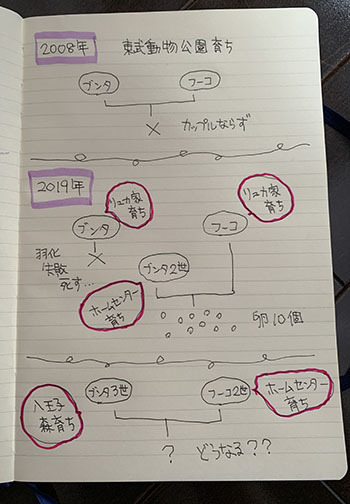 2008年 東武動物公園育ち
ブンタ フーコ
× カップルならず
2019年
リュカ家
育ち
リュカ家
育ち
ブンタ フーコ
×
羽化
失敗
死す…
ブンタ2世
ホームセンター
育ち
卵10個
八王子
森育ち
ブンタ3世 フーコ2世
ホームセンター
育ち
? どうなる??